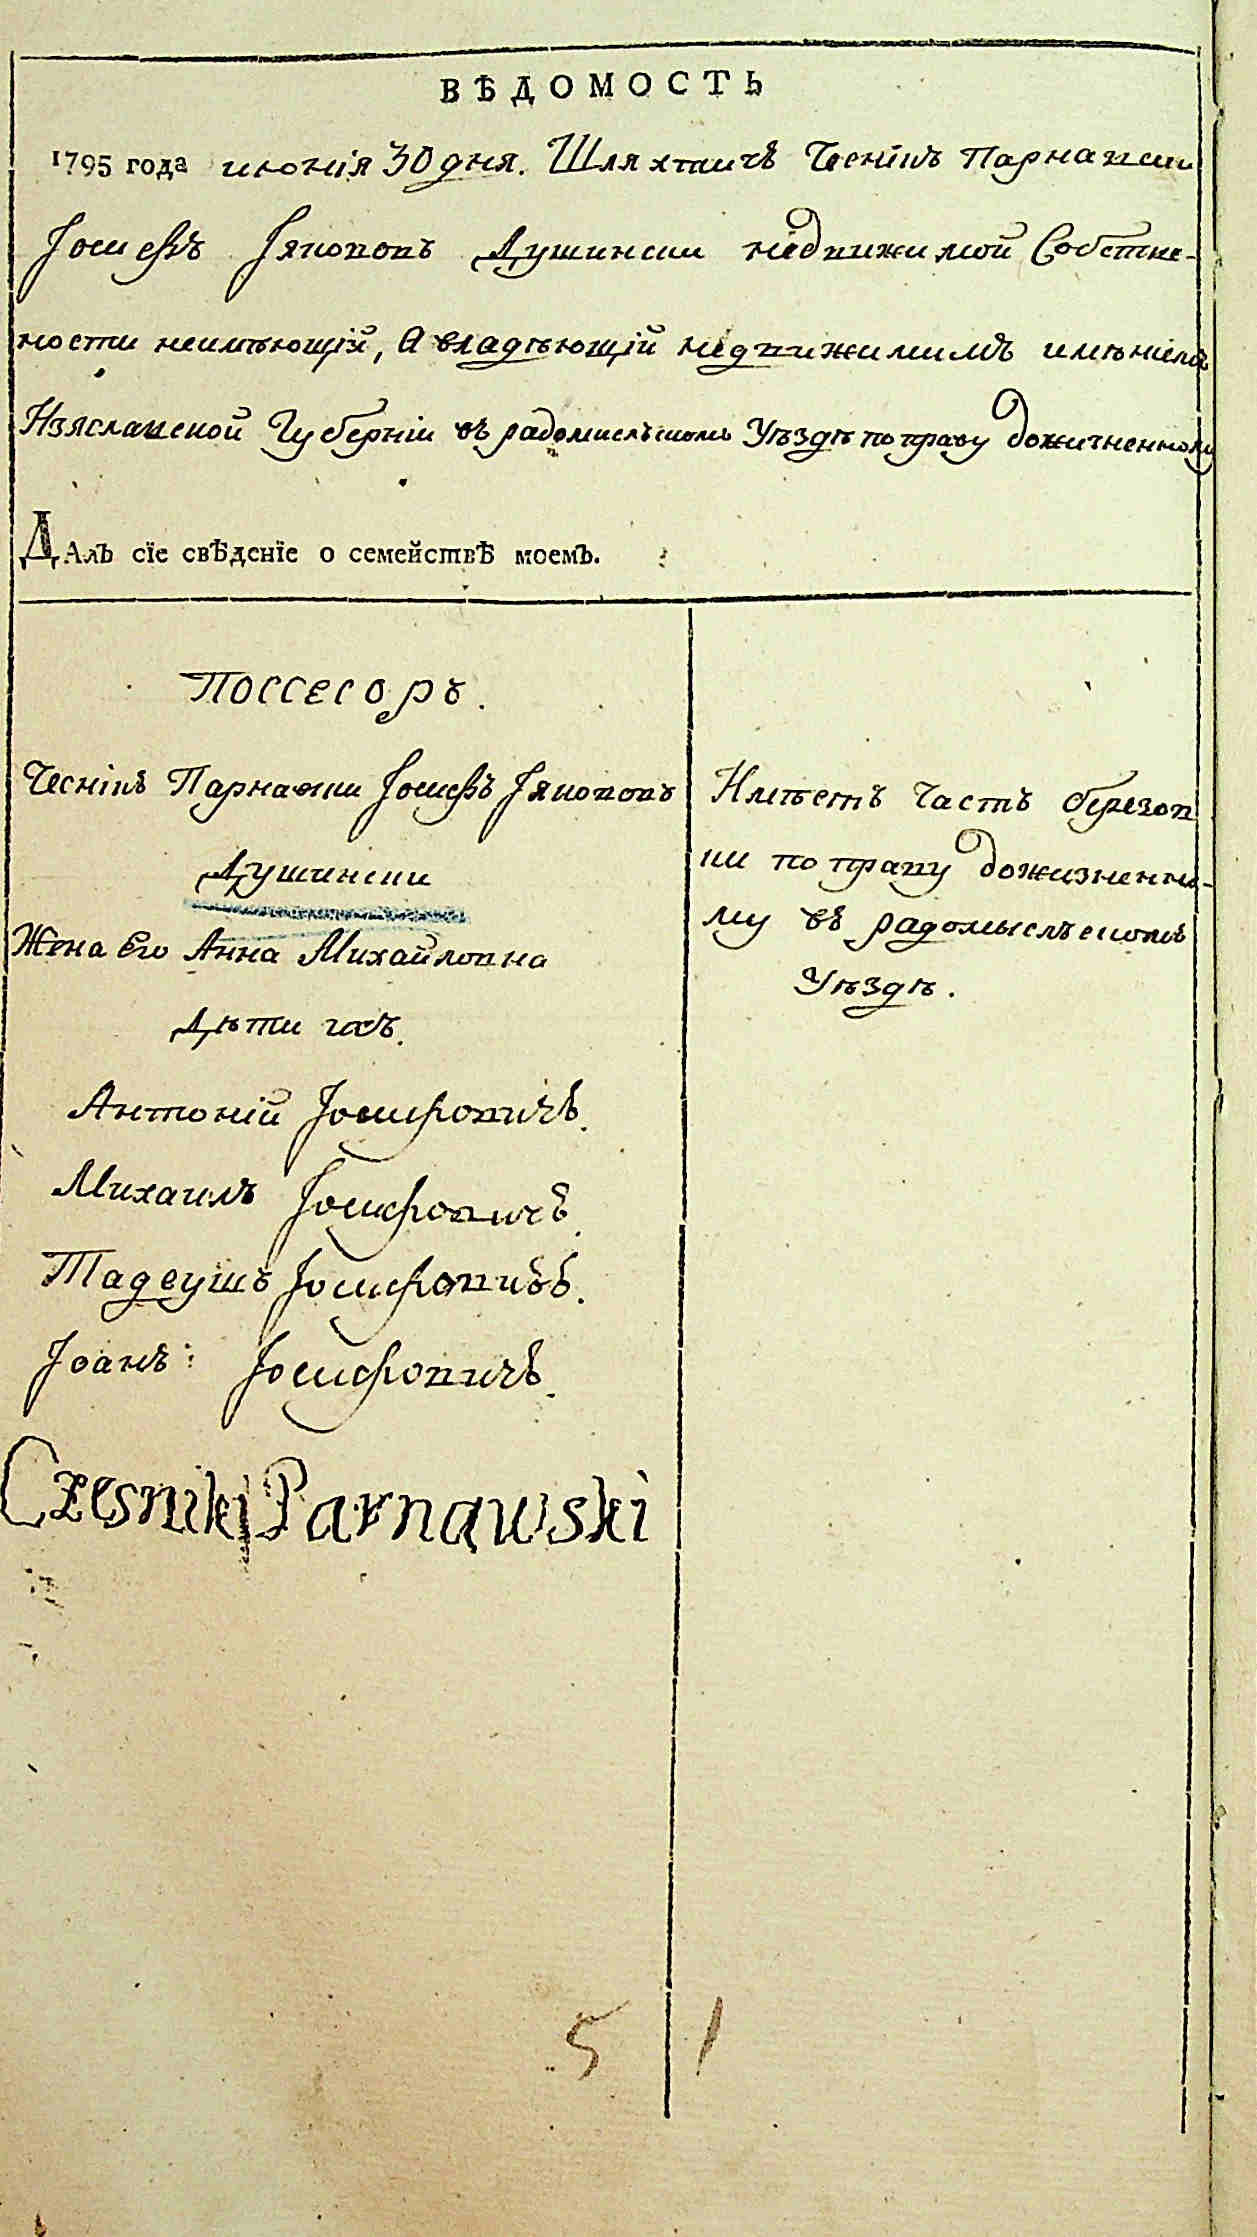 ВѢДОМОСТЬ
1795 года июнія 30 дня. Шляхтичъ Чесникъ Парнавски
Іосифъ Якововъ Душински недвижимой Собстве-
ности неимѣющій, А владѣющій недвижимимъ имѣніемъ
Изяславской Губерніи въ радомислъскомъ Уѣздѣ по праву дожичненному
Далъ сїе свѣденїе о семействѣ моемъ.
Поссесоръ.
Чеснікъ Парнавски Іосифъ Якововъ
Душински
Жена Его Анна Михайловна
Дѣти ихъ.
Антоній Іосифовичъ.
Михаилъ Іосифовичъ.
Тадеушъ Іосифовичъ.
Іоанъ: Іосифовичъ.
Czesniki Parnawski
Имѣетъ Частъ березов
ки по праву дожизненно-
му въ радомыслъскомъ
Уѣздѣ.
5 1